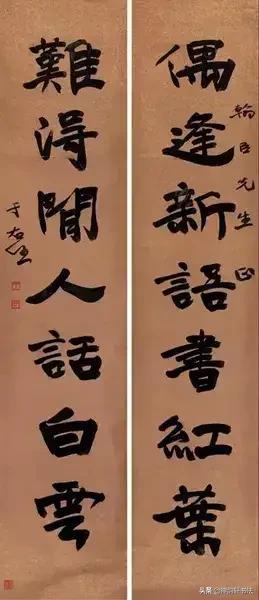 偶逢新語書紅葉
翰臣先生正
難得閒人話白雲
于右任
头条